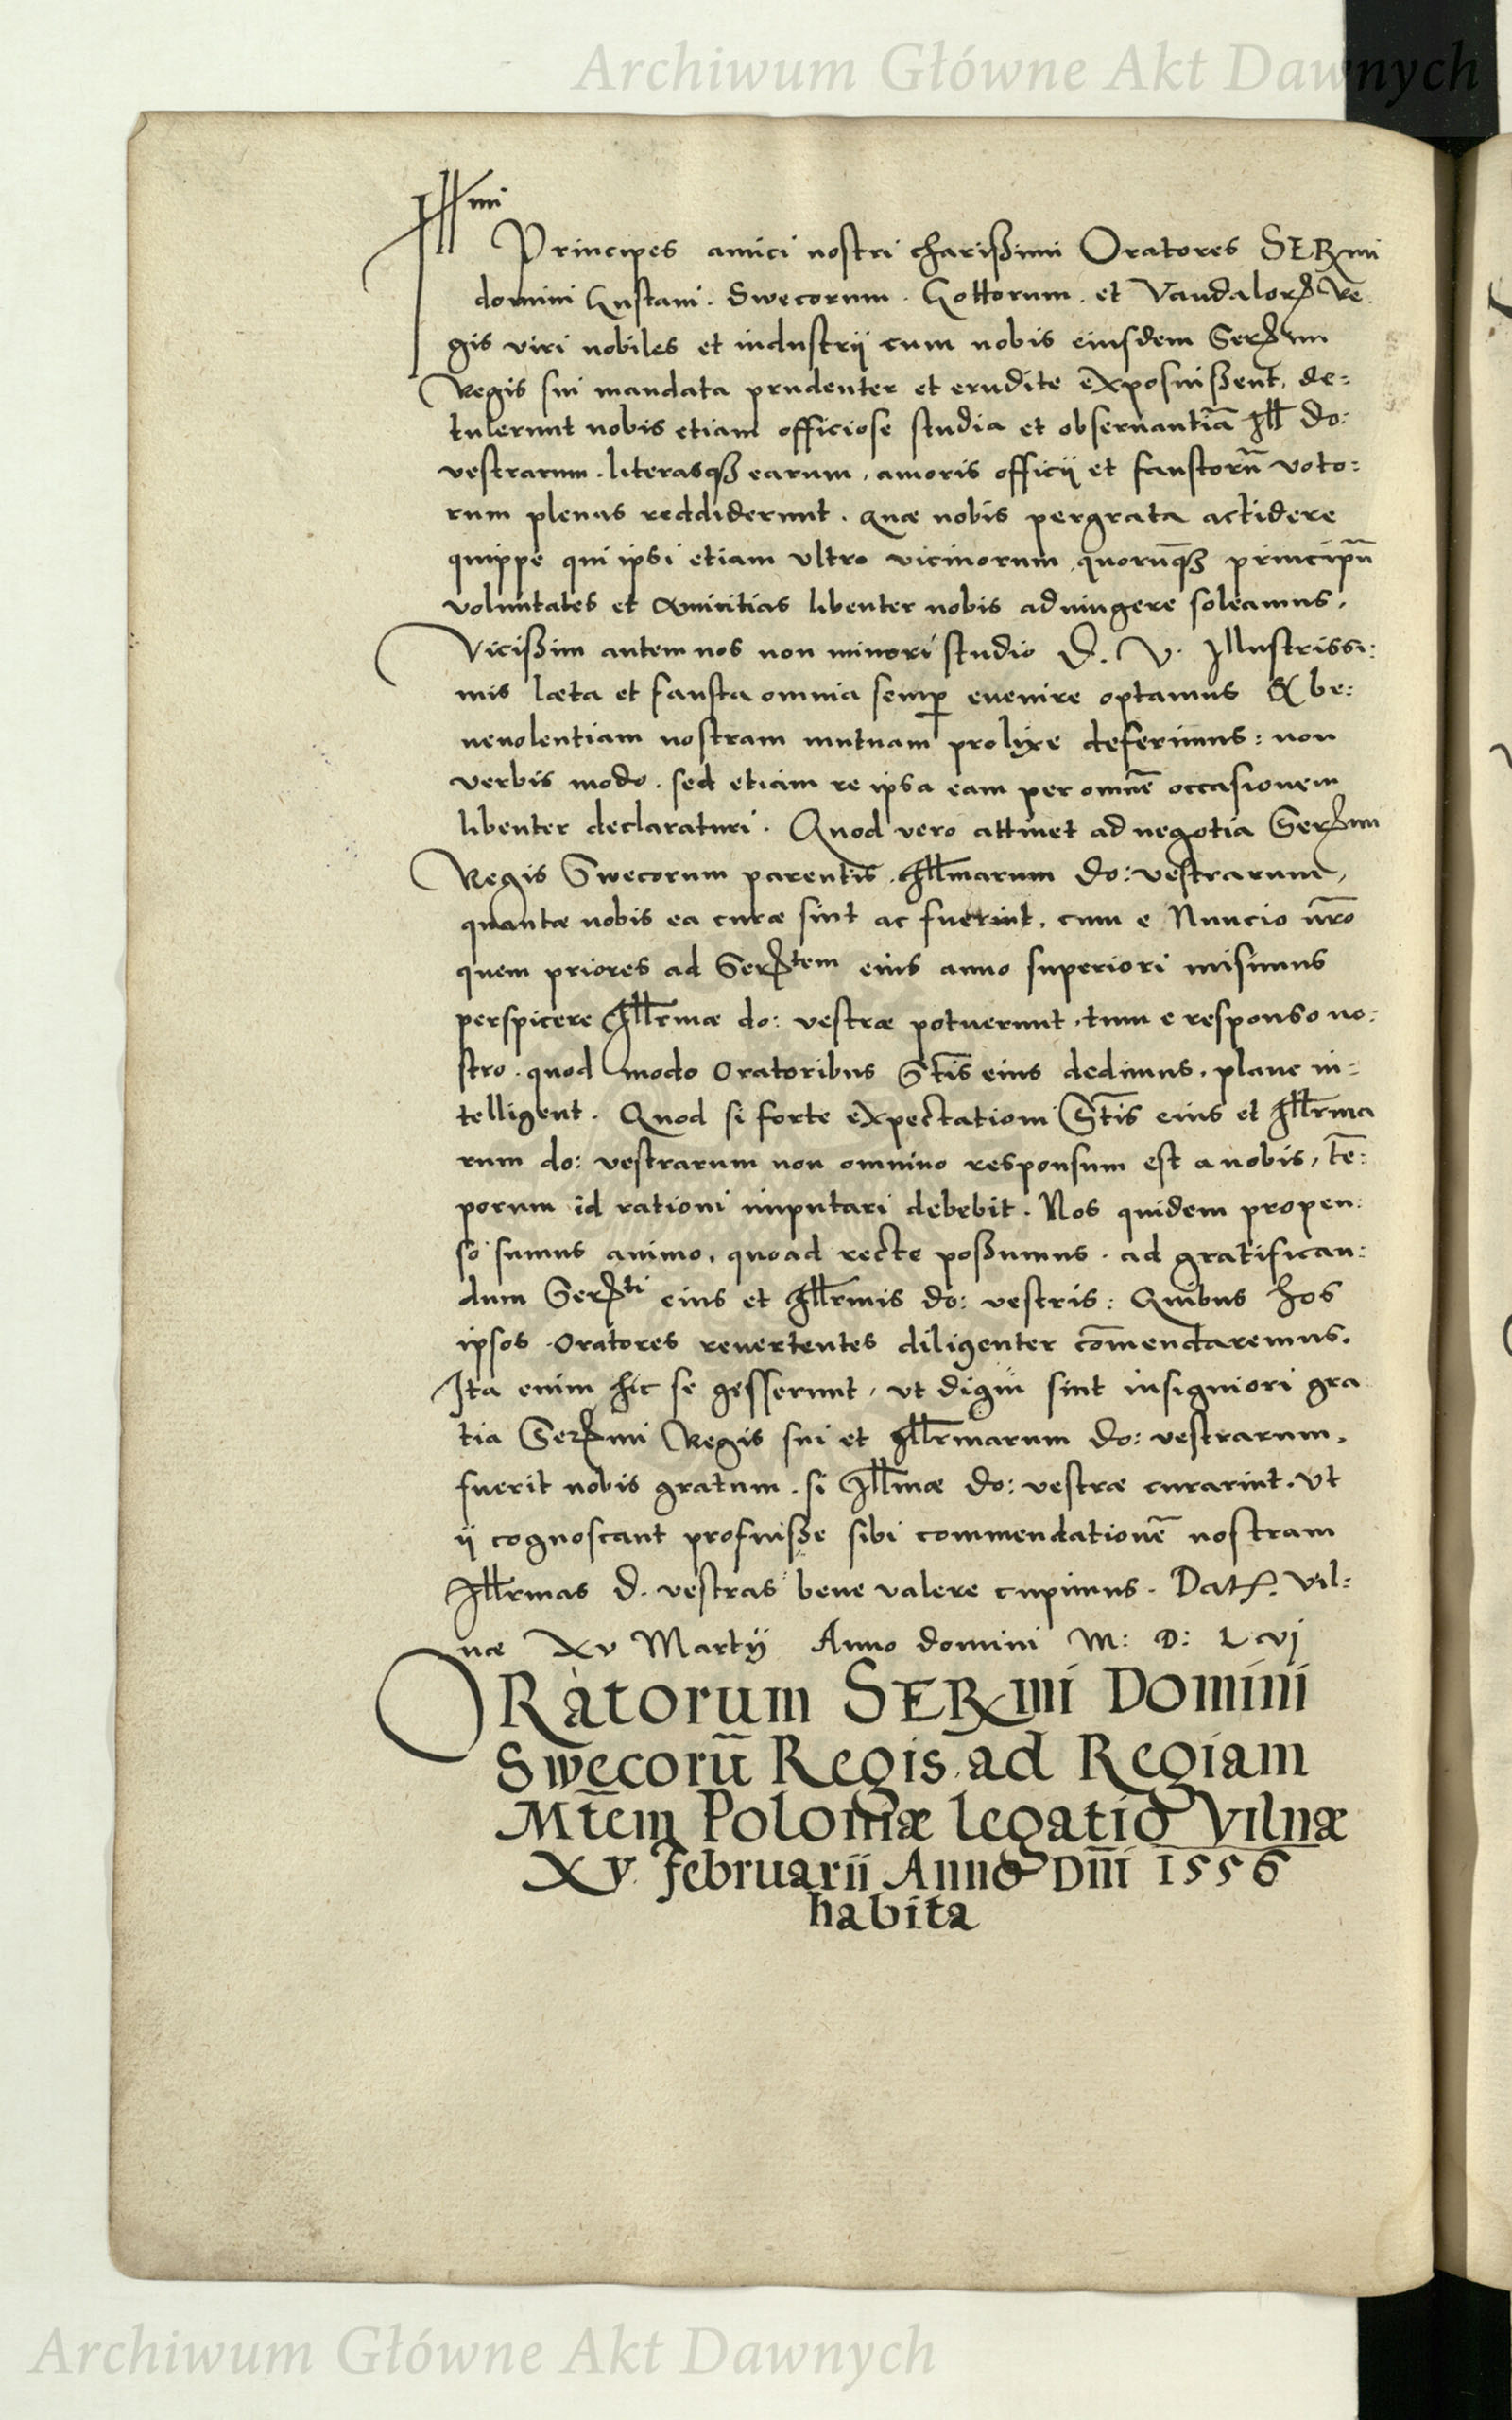 Archiwum Główne Akt Dawnych
Illmi
Principes amici nostri charißimi Oratores SERmi
domini Gustaui. Swecorum. Gottorum. et Vandalor Re
gis viri nobiles et industrij cum nobis eiusdem Sermi
Regis sui mandata prudenter et erudite exposuißent, de=
tulerunt nobis etiam officiose studia et obseruantiā Ill do:
vestrarum. literasq₃ earum, amoris officij et faustorū voto=
rum plenas reddiderunt. quæ nobis pergrata actidere
quippe qui ipsi etiam vltro vicinorum quorūq₃ principū
voluntates et amicitias libenter nobis adiungere soleamus,
Vicißim autem nos non minori studio D. V. Illustrissi:
mis læta et fausta omnia semp euenire optamus & be:
neuolentiam nostram mutuam prolixe deferimus: non
verbis modo. sed etiam re ipsa eam per omnē occasionem
libenter declaraturi. Quod vero attinet ad negotia Sermi
Regis Swecorum parentis. Illmarum do: vestrarum,
quantæ nobis ea curæ sint ac fuerint, cum e Nuncio nr̄o
quem priores ad Sertem eius anno superiori misimus
perspicere Illrmæ do: vestræ potuerunt, tum e responso no:
stro. quod modo Oratoribus Stīs eius dedimus, plane in=
telligent. Quod si forte expectationi Stīs eius et Illrma
rum do: vestrarum non omnino responsum est a nobis, tē=
porum id rationi imputari debebit. Nos quidem propen:
so sumus animo, quoad recte poßumus. ad gratifican:
dum Serti eius et Illrmis do: vestris: Quibus hos
ipsos Oratores reuertentes diligenter cōmendaremus.
Ita enim hic se gesserunt, vt digni sint insigniori gra
tia Sermi Regis sui et Illrmarum do: vestrarum,
fuerit nobis gratum. si Illmæ do: vestræ curarint. vt
ij cognoscant profuiße sibi commendationē nostram
Illrmas D. vestras bene valere cupimus. Dat. Vil:
næ XV Martij Anno domini M: D: Lvj
ORatorum SERmi Domini
Swecorū Regis ad Regiam
Mt̄em Poloniæ legatio Vilnæ
XV. februarii Anno Dn̄i 1556
habita
Archiwum Główne Akt Dawnych